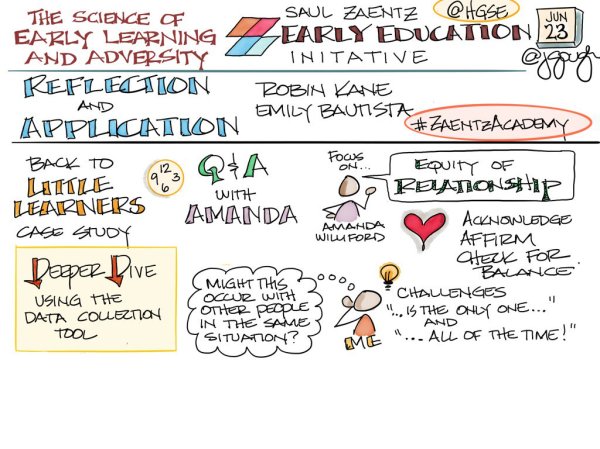 THE SCIENCE OF
EARLY LEARNING
AND ADVERSITY
SAUL ZAENTZ
EARLY EDUCATION
INITATIVE
@HGSE
JUN
23
@jgough
REFLECTION
AND
APPLICATION
ROBIN KANE
EMILY BAUTISTA
#ZAENTZACADEMY
BACK TO
LITTLE
LEARNERS
CASE STUDY
12
9 3
6
Q&A
WITH
AMANDA
FOCUS
ON...
AMANDA
WILLIFORD
EQUITY OF
RELATIONSHIP
ACKNOWLEDGE
AFFIRM
CHECK FOR
BALANCE
DEEPER DIVE
USING THE
DATA COLLECTION
TOOL
MIGHT THIS
OCCUR WITH
OTHER PEOPLE
IN THE SAME
SITUATION?
ME
CHALLENGES
"...IS THE ONLY ONE..."
AND
"...ALL OF THE TIME!"